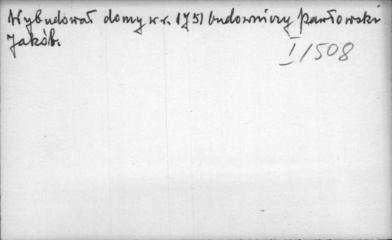 Wybudował domy w r. 1751 budowniczy Pawłowski
Jakób.
I/1508